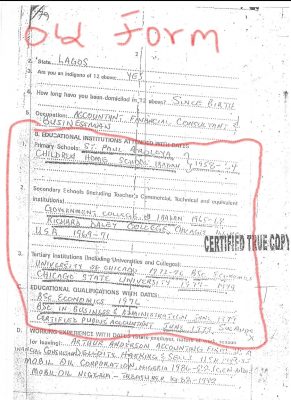 Old Form
2. State: LAGOS
3. Are you an indigene of 12 above: YES
4. How long have you been domiciled in 12 above? SINCE BIRTH
5. Occupation: ACCOUNTANT, FINANCIAL CONSULTANT &
BUSINESSMAN
B. EDUCATIONAL INSTITUTIONS ATTENDED WITH DATES
1. Primary Schools: ST. PAUL
CHILDREN HOME SCHOOL IBADAN 1958-64
2. Secondary Schools (Including Teacher's Commercial, Technical and equivalent
institutions)
GOVERNMENT COLLEGE, IBADAN 1965-
RICHARD DALEY COLLEGE, CHICAGO
USA 1969-71
CERTIFIED TRUE COPY
3. Tertiary Institutions (Including Universities and Colleges):
UNIVERSITY OF CHICAGO BSC Economics
CHICAGO STATE UNIVERSITY 1979
EDUCATIONAL QUALIFICATIONS WITH DATES:
BSC ECONOMICS 1976
BSC IN BUSINESS & ADMINISTRATION JUNE 1979
CERTIFIED PUBLIC ACCOUNTANT JUNE 1979,
D. WORKING EXPERIENCE WITH DATES
for leaving): ARTHUR ANDERSON ACCOUNTING FIRM
DELOITTE HASKINS & SELLS USA
MOBIL OIL CORPORATION, NIGERIA
MOBIL OIL NIGERIA - TREASURER